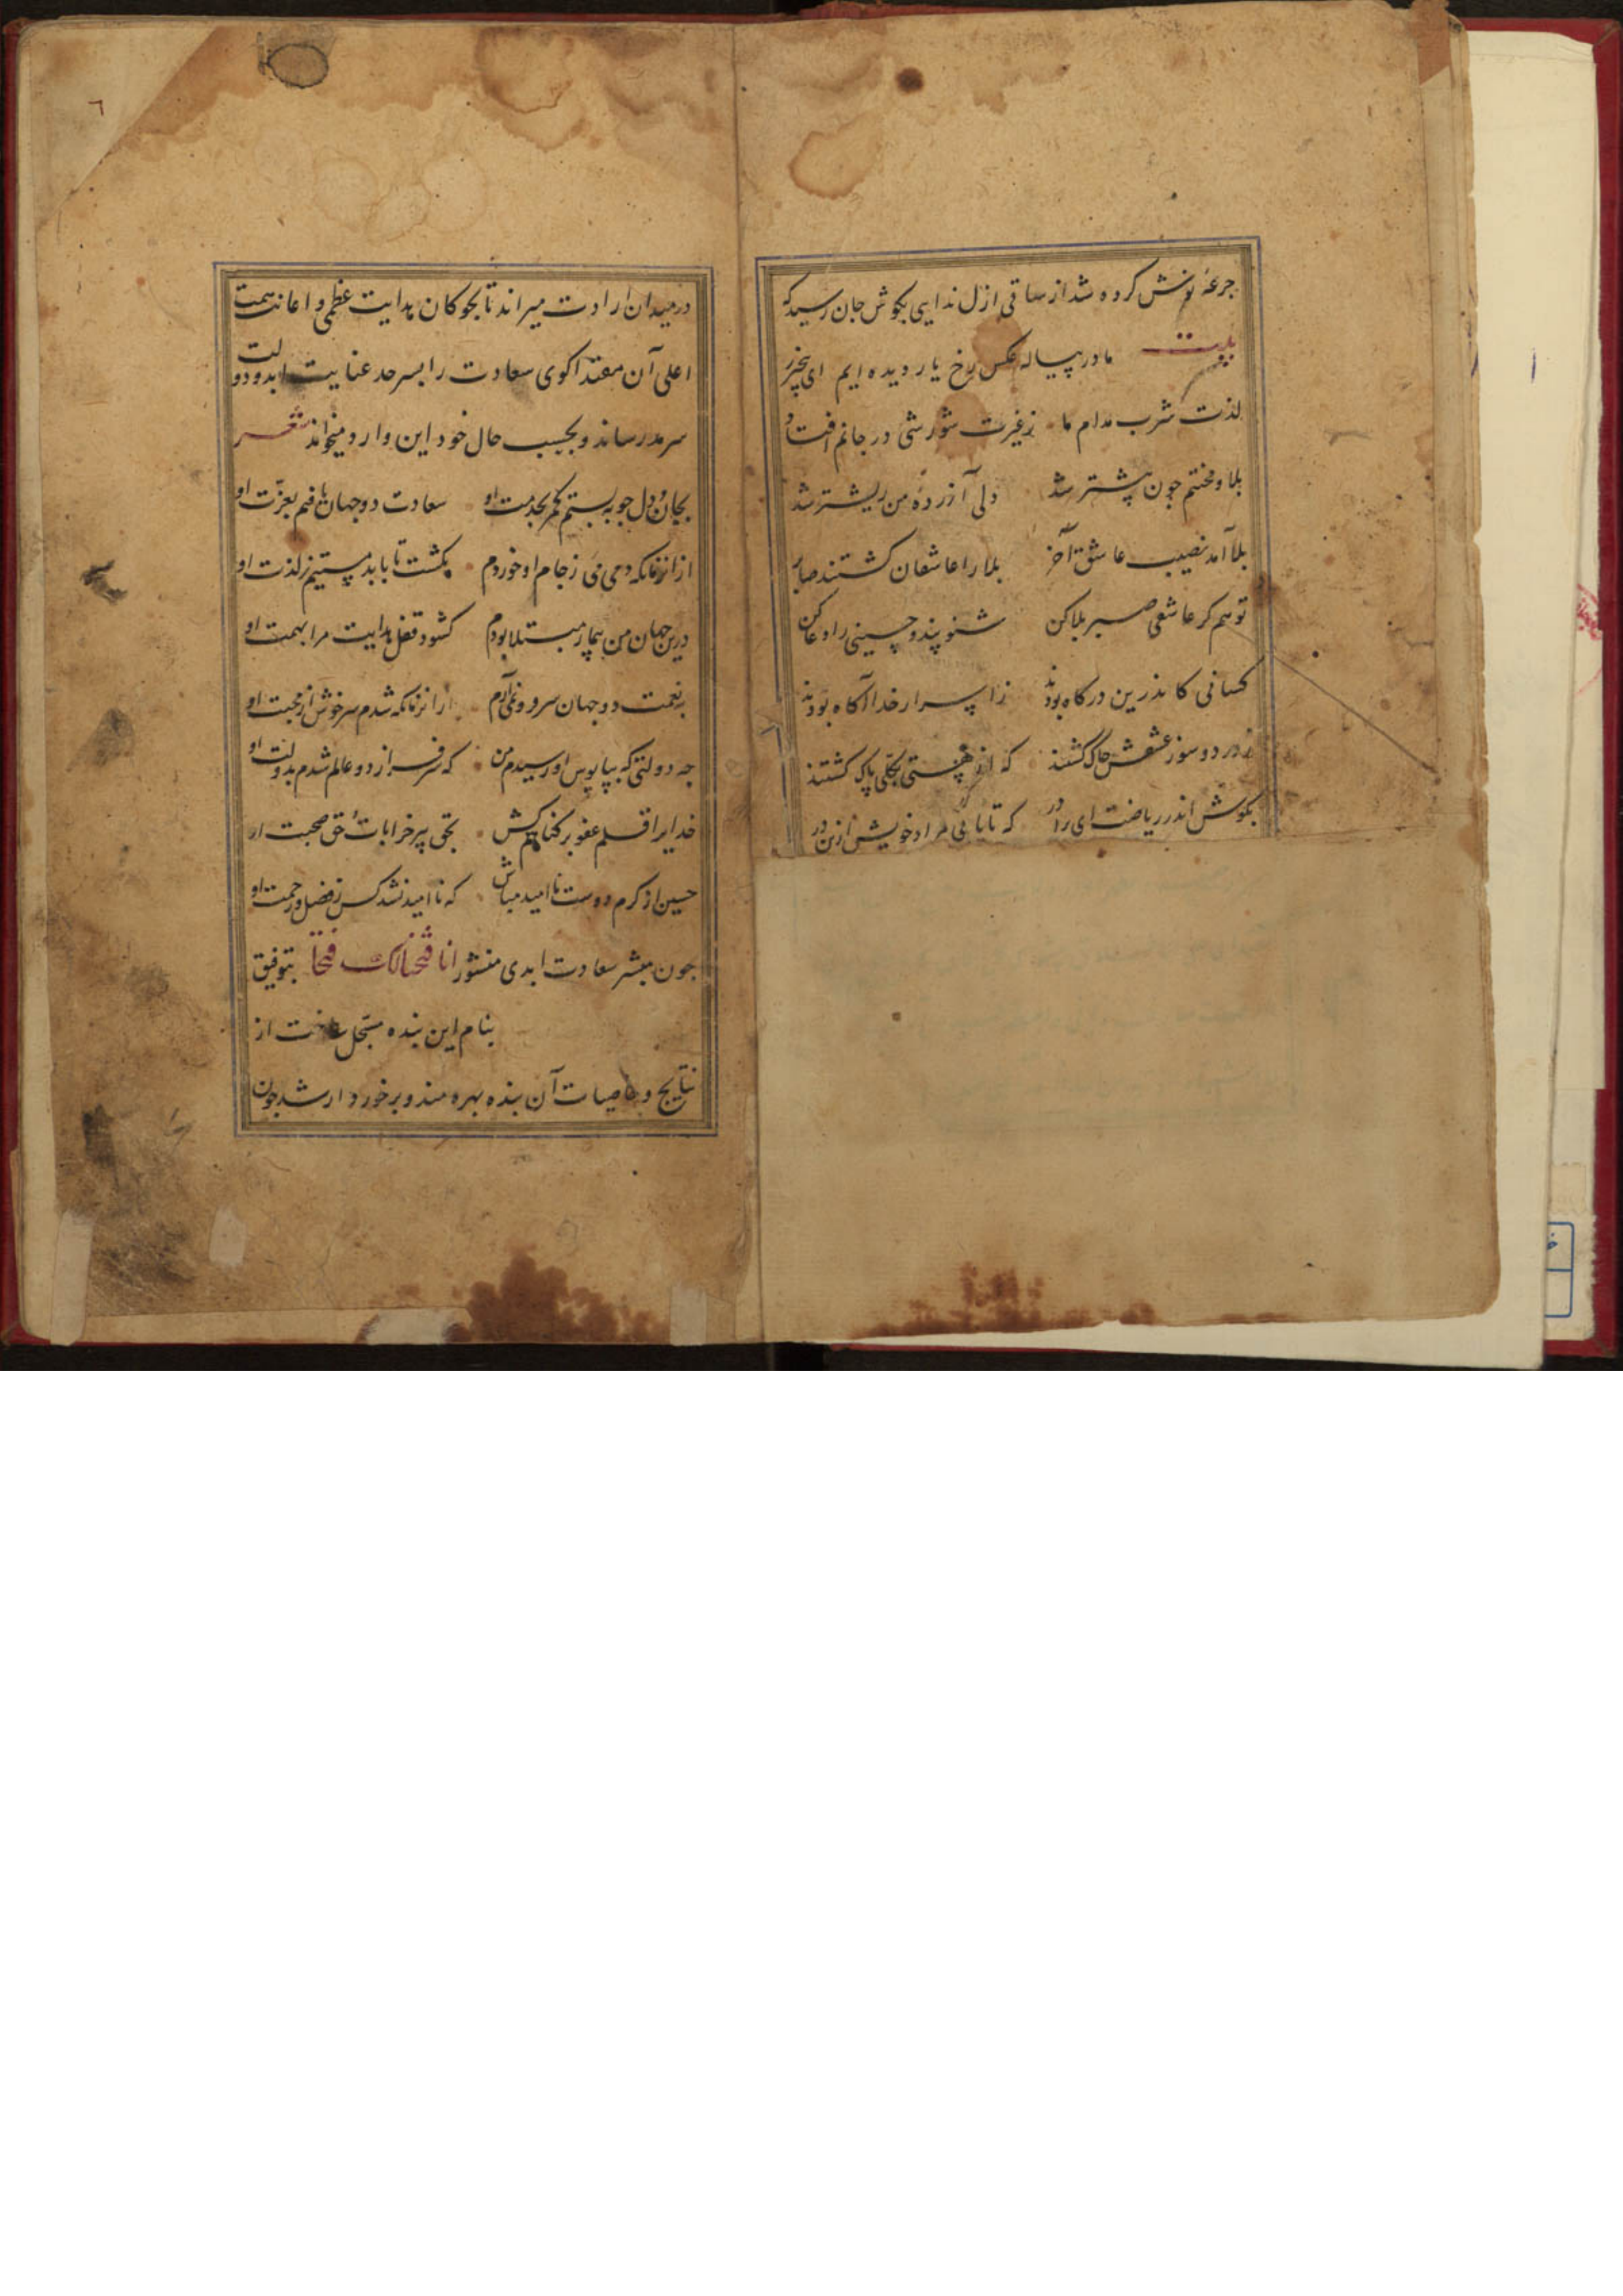 جرعهٔ نوش کرده شد از ساقی ازل ندایی بکوش جان رسید که
بیت ما در پیاله عکس رخ یار دیده ایم ای بیخبر ز
لذت شرب مدام ما زغیرت شورشی در جانم افتاد
بلا و محنتم چون پیشتر شد دلی آزرده من ریشتر شد
بلا آمد نصیب عاشق آخر بلا را عاشقان کشتند صابر
تو هم کر عاشقی صبر بلا کن شنو پند و حسینی را دعا کن
کسانی کاندرین درکاه بودند ز اسرار خدا آکاه بودند
ز درد و سوز عشقش خاک کشتند که از هستی بکلی پاک کشتند
بکوش اندر ریاضت ای برادر که تا یابی مراد خویش ازین در
٦
در میدان ارادت میراند تا بچوکان هدایت عظمی و اعانت همت
اعلی آن مقتدا کوی سعادت را بسرحد عنایت ابد و دولت
سرمد رساند و بحسب حال خود این وارد میخواند شعر
بجان و دل چو ببستم کمر بخدمت او سعادت دو جهان یافتم بعزت او
از انزمانکه دمی می زجام او خوردم نکشت تا بابد مستیم ز لذت او
درین جهان من بیمار مبتلا بودم کشود قفل هدایت مرا بهمت او
بنعمت دو جهان سر فرو نمی آرم از انزمانکه شدم سرخوش از محبت او
چه دولتی که بپابوس او رسیدم من که سرفراز دو عالم شدم بدولت او
خدایرا قلم عفو بر کناهم کش بحق پیر خرابات و حق صحبت او
حسین از کرم دوست ناامید مباش که ناامید نشد کس زفضل و رحمت او
چون مبشر سعادت ابدی منشور انا فتحنا لک فتحا بتوفیق
بنام این بنده مسجل ساخت از
نتایج و خاصیات آن بنده بهره مند و برخوردار شد چون